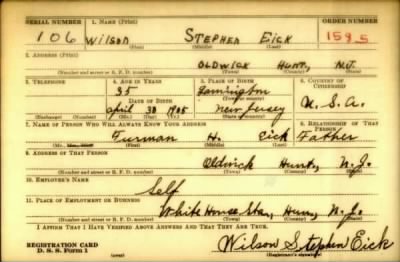 SERIAL NUMBER 1. NAME (Print) ORDER NUMBER
106 Wilson Stephen Eick 1585
(First) (Middle) (Last)
2. ADDRESS (Print)
OLDWICK HUNT. N.J.
(Number and street or R. F. D. number) (Town) (County) (State)
3. TELEPHONE 4. AGE IN YEARS 5. PLACE OF BIRTH 6. COUNTRY OF CITIZENSHIP
35 Lamington
DATE OF BIRTH (Town or county)
April 30 1905 New Jersey U.S.A.
(Exchange) (Number) (Mo.) (Day) (Yr.) (State or country)
7. NAME OF PERSON WHO WILL ALWAYS KNOW YOUR ADDRESS 8. RELATIONSHIP OF THAT PERSON
Furman H. Eick Father
(First) (Middle) (Last)
9. ADDRESS OF THAT PERSON
Oldwick Hunt. N.J.
(Number and street or R. F. D. number) (Town) (County) (State)
10. EMPLOYER'S NAME
Self
11. PLACE OF EMPLOYMENT OR BUSINESS
White House Sta., Hun. N.J.
(Number and street or R. F. D. number) (Town) (County) (State)
I AFFIRM THAT I HAVE VERIFIED ABOVE ANSWERS AND THAT THEY ARE TRUE.
REGISTRATION CARD
D. S. S. Form 1
Wilson Stephen Eick
(Registrant's signature)